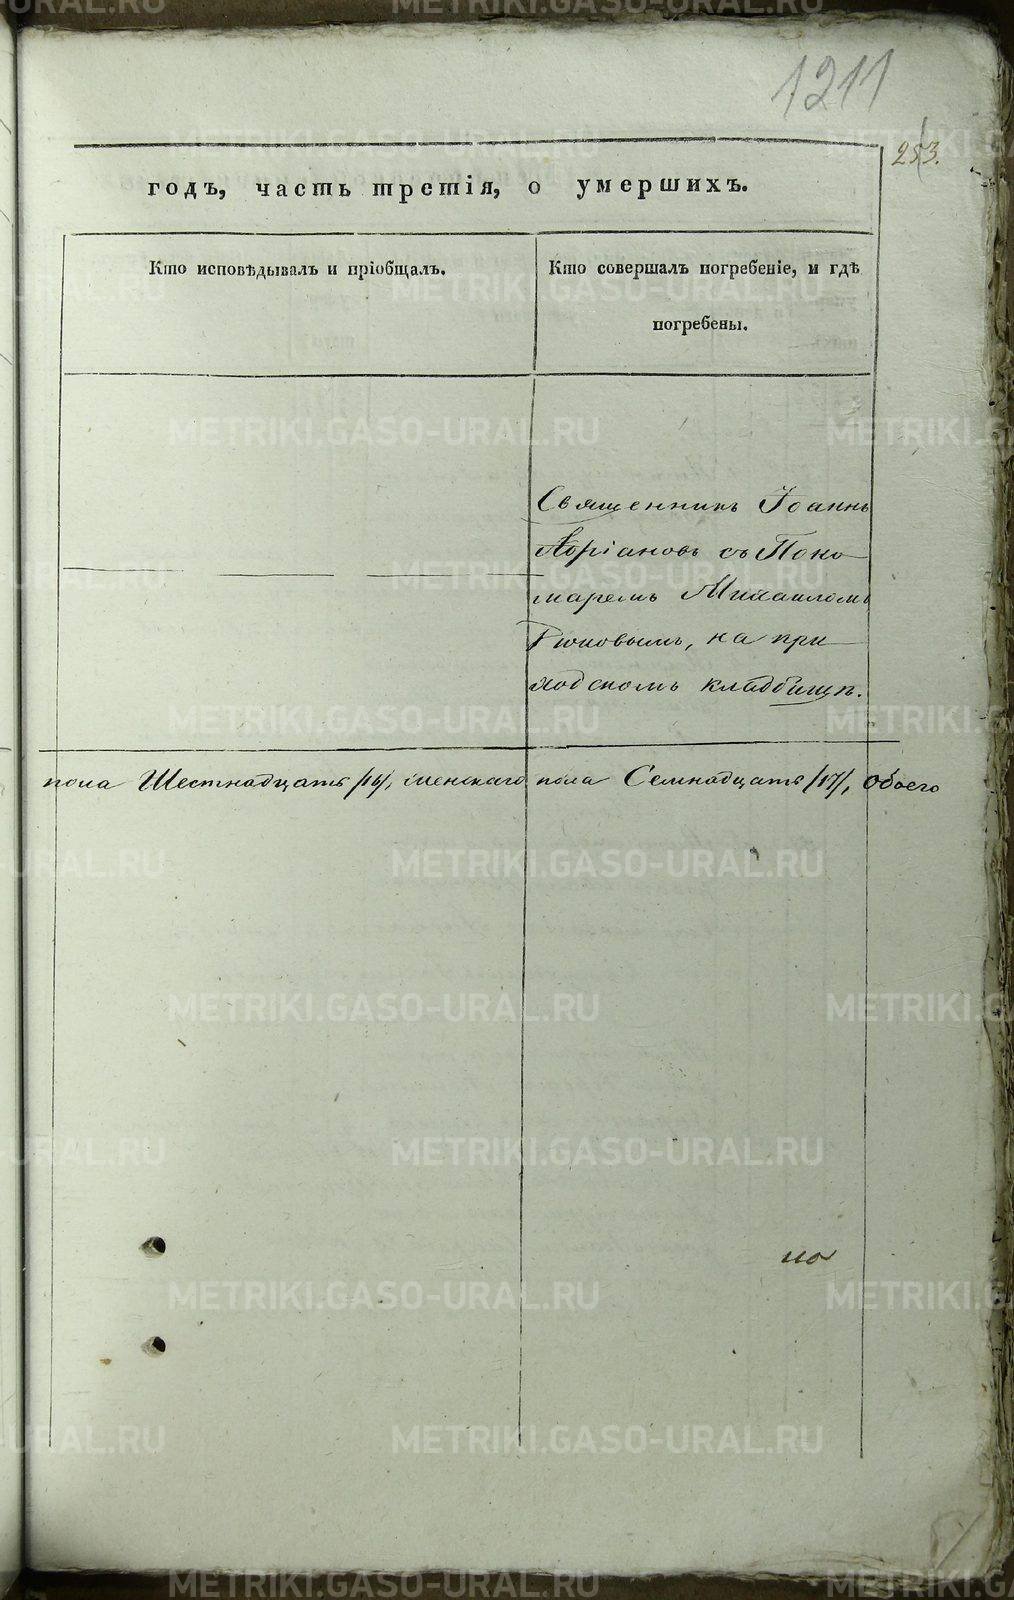 1211
253.
годъ, часть третія, о умершихъ.
Кто исповѣдывалъ и пріобщалъ.
Кто совершалъ погребеніе, и гдѣ
погребены.
Священникъ Іоаннъ
Адріановъ съ Поно
маремъ Михаиломъ
Рюковымъ, на при
ходскомъ кладбищѣ.
пола Шестнадцать /16/, женскаго пола Семнадцать /17/, Обоего
по
METRIKI.GASO-URAL.RU